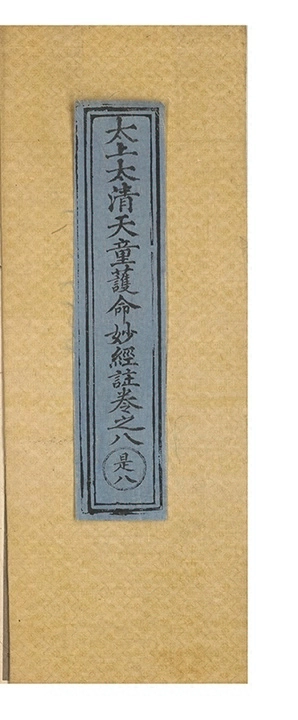 太上太清天童護命妙經註卷之八
是八